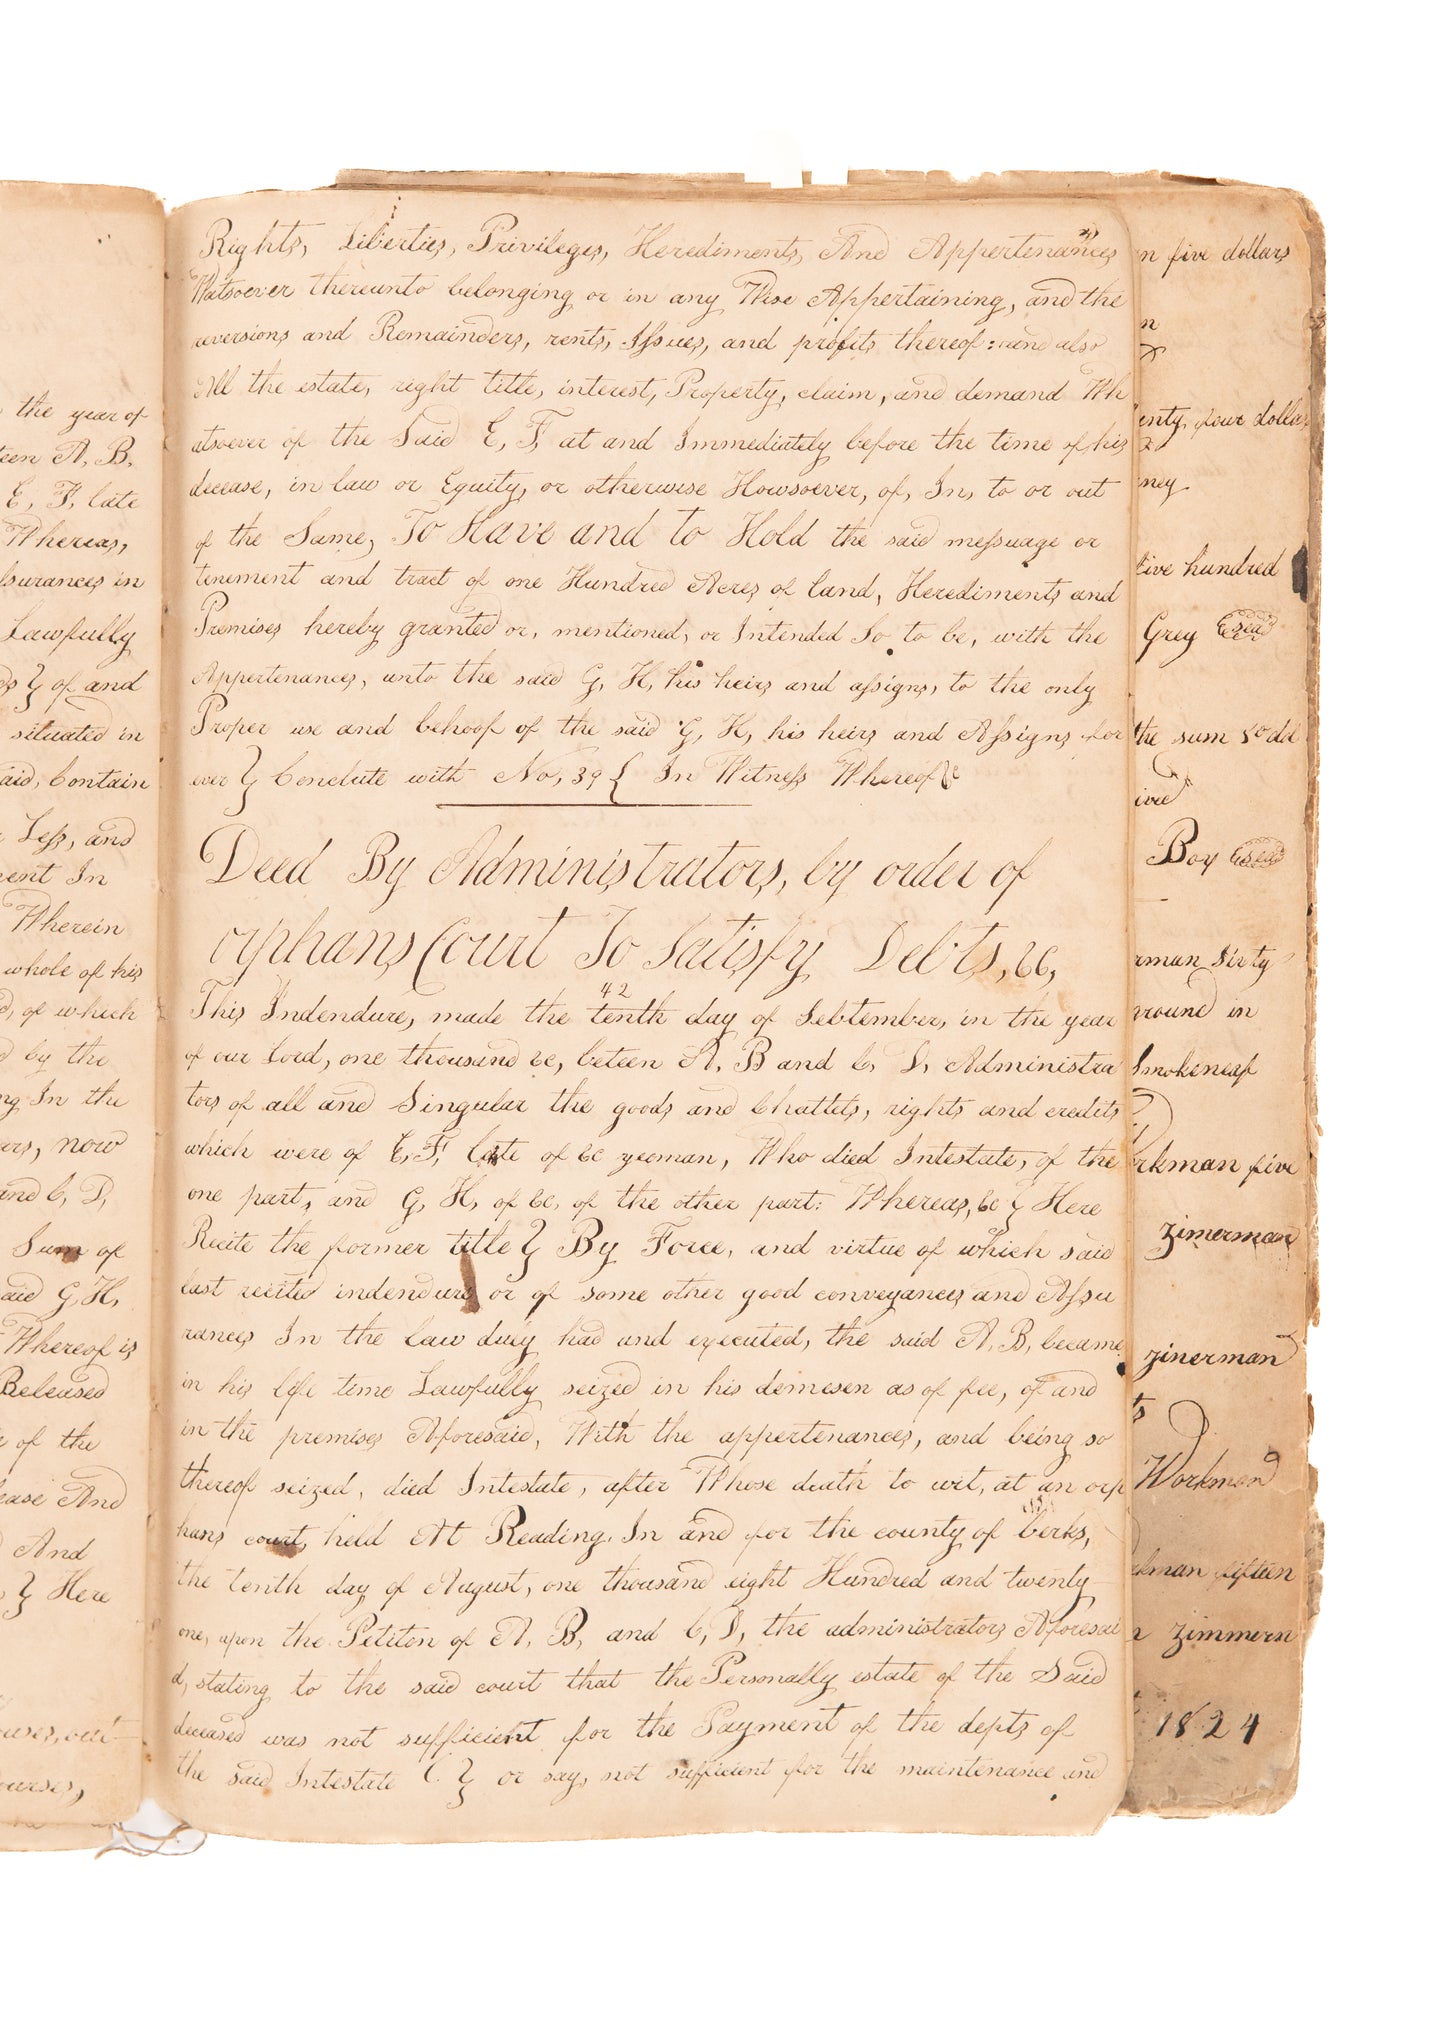 the year of
teen A. B.
E, F, late
Whereas,
ssurances in
Lawfully
of and
situated in
aid, Contain
Less, and
ent In
Wherein
whole of his
of which
by the
ng In the
ars, now
and C, D,
Sum of
aid G, H,
Whereof is
Released
of the
ease And
And
Here
Rights, Liberties, Privileges, Herediments, And Appertenances
Watsoever thereunto belonging or in any Wise Appertaining, and the
reversions and Remainders, rents, Issues, and profits thereof: and also
All the estate, right title, interest, Property, claim, and demand Wh
atsoever of the Said E, F, at and Immediately before the time of his
decease, in law or Equity, or otherwise Howsoever, of, In, to or out
of the Same, To Have and to Hold the said messuage or
tenement and tract of one Hundred Acres of land, Herediments and
Premises hereby granted or, mentioned, or Intended So to be, with the
Appertenances, unto the said G, H, his heirs and assigns, to the only
Proper use and behoof of the said G, H, his heirs and Assigns for
ever } Conclute with No, 39 { In Witness Whereof &c
Deed By Administrators, by order of
orphans Court To Satisfy Debts, &c,
42
This Indendure, made the tenth day of Sebtember, in the year
of our Lord, one thousand &c, beteen A, B and C, D, Administra
tors of all and Singular the goods and Chattels, rights and credits
which were of E, F, late of &c yeoman, Who died Intestate, of the
one part, and G, H, of &c, of the other part: Whereas, &c } Here
Recite the former title } By Force, and virtue of which said
last recited indendure or of some other good conveyances and Assu
rances In the Law duly had and executed, the said A, B, became
in his life time Lawfully seized in his demesen as of fee, of and
in the premises Aforesaid, With the appertenances, and being so
thereof seized, died Intestate, after Whose death to wit, at an orp
hans court, held At Reading, In and for the county of berks,
the tenth day of August, one thousand eight Hundred and twenty
one, upon the Petiton of A, B, and C, D, the administrators Aforesai
d, stating to the said court that the Personally estate of the Said
deceased was not sufficient for the Payment of the depts of
the said Intestate C. } or say, not sufficient for the maintenance and
n five dollars
n
enty, four dollars
ney
five hundred
Grey Seal
the sum 50 dd
ived
Boy Seal
rman Sixty
ground in
Smokeneas
rkman five
Zimerman
zinerman
ts
Workman
rkman fifteen
n zimmern
1824